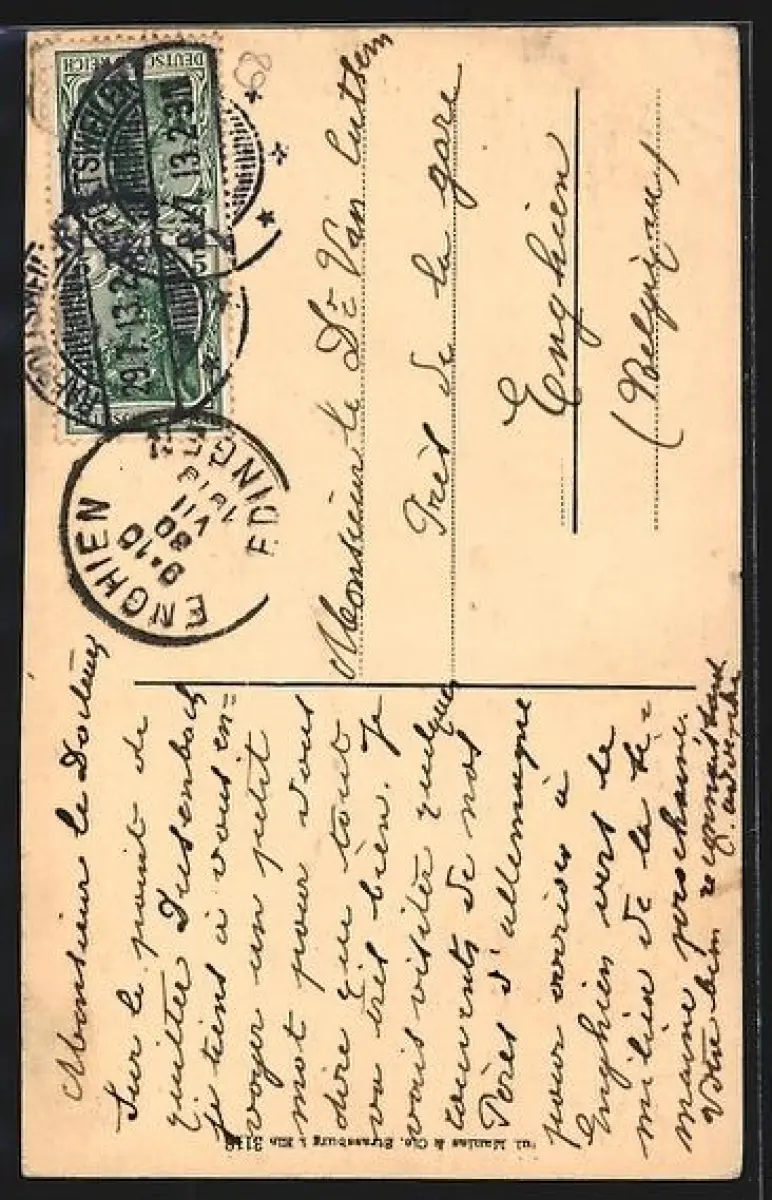 Monsieur le Docteur
Sur le point de
quitter Dusenbach
je tiens à vous en-
voyer un petit
mot pour vous
dire que tout
va très bien. Je
vais visiter quelques
couvents de nos
Pères d'allemagne
pour arriver à
Enghien vers le
milieu de la se-
maine prochaine.
Votre bien reconnaissant
Monsieur le Dr Van Cutsem
Près de la gare
Enghien
(Belgique)
DEUTSCHES REICH
29.7.13.2
13.2-3N
ENGHIEN
EDING
9-10
30
VII
1913
Jul. Manias & Cie, Strassburg i. Els 3118
68